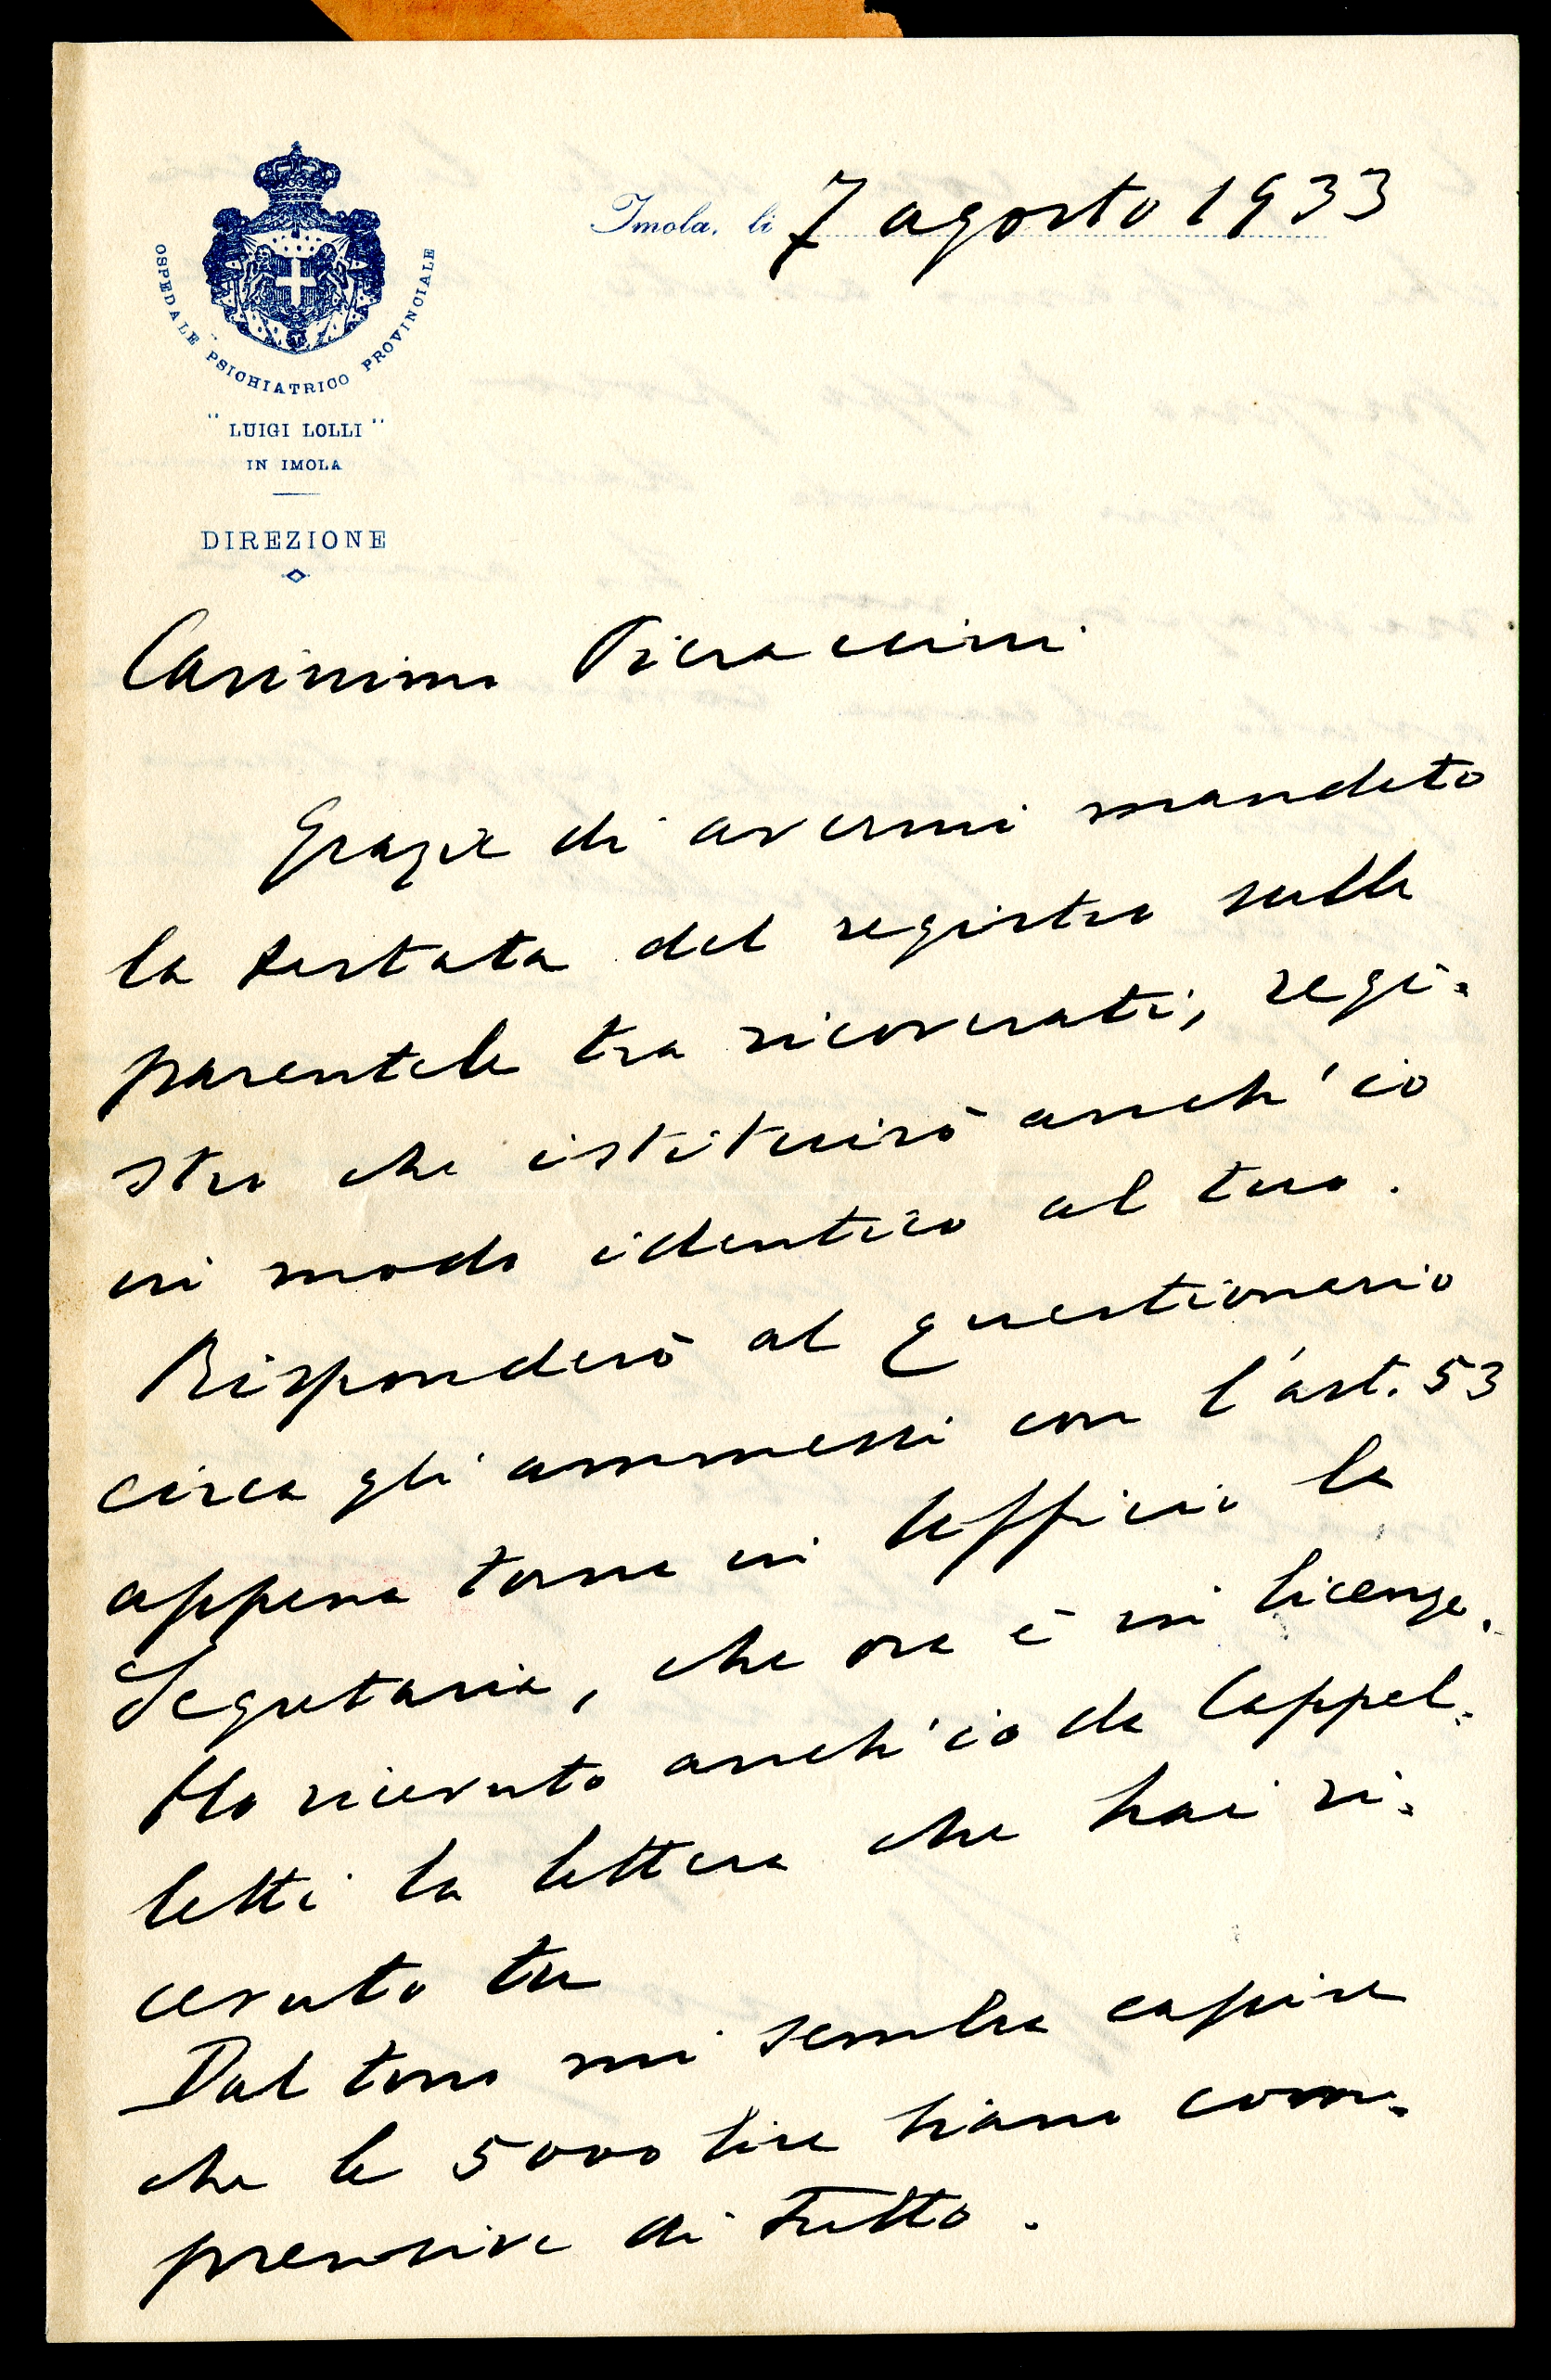 Imola, li 7 agosto 1933
OSPEDALE PSICHIATRICO PROVINCIALE
"LUIGI LOLLI"
IN IMOLA
DIREZIONE
Carissimo Pieraccini
Grazie di avermi mandato
la testata del registro sulle
parentele tra ricoverati, regi=
stro che istituirò anch'io
in modo identico al tuo.
Risponderò al questionario
circa gli ammessi con l'art. 53
appena torna in Ufficio la
Segretaria, che ora è in licenza.
Ho ricevuto anch'io da Cappel=
letti la lettera che hai ri=
cevuto tu
Dal tono mi sembra capire
che le 5000 lire siano com=
prensive di tutto.